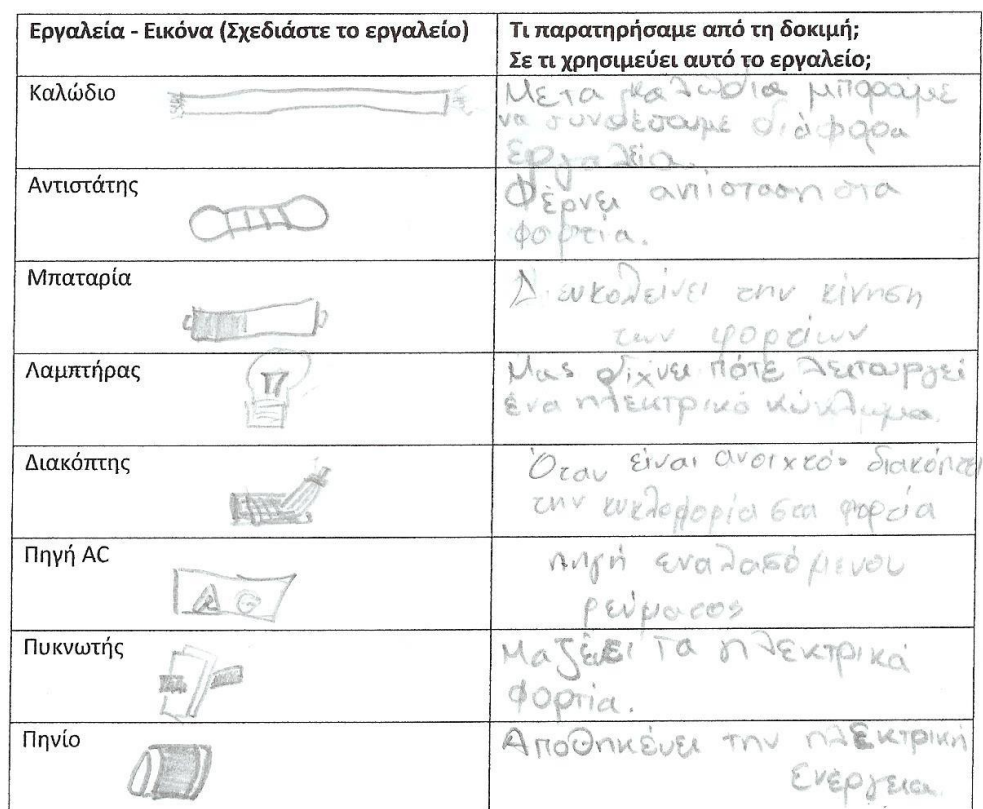 Εργαλεία - Εικόνα (Σχεδιάστε το εργαλείο)
Τι παρατηρήσαμε από τη δοκιμή;
Σε τι χρησιμεύει αυτό το εργαλείο;
Καλώδιο
Με τα καλώδια μπορούμε
να συνδέσουμε διάφορα
εργαλεία.
Αντιστάτης
Φέρνει αντίσταση στα
φορτία.
Μπαταρία
Διευκολείνει την κίνηση
των φορτίων
Λαμπτήρας
Μας δίχνει πότε λειτουργεί
ένα ηλεκτρικό κύκλωμα.
Διακόπτης
Όταν είναι ανοιχτός διακόπτει
την κυκλοφορία στα φορτία
Πηγή AC
A C
πηγή εναλασόμενου
ρεύματος
Πυκνωτής
Μαζεύει τα ηλεκτρικά
φορτία.
Πηνίο
Αποθηκεύει την ηλεκτρική
ενέργεια.